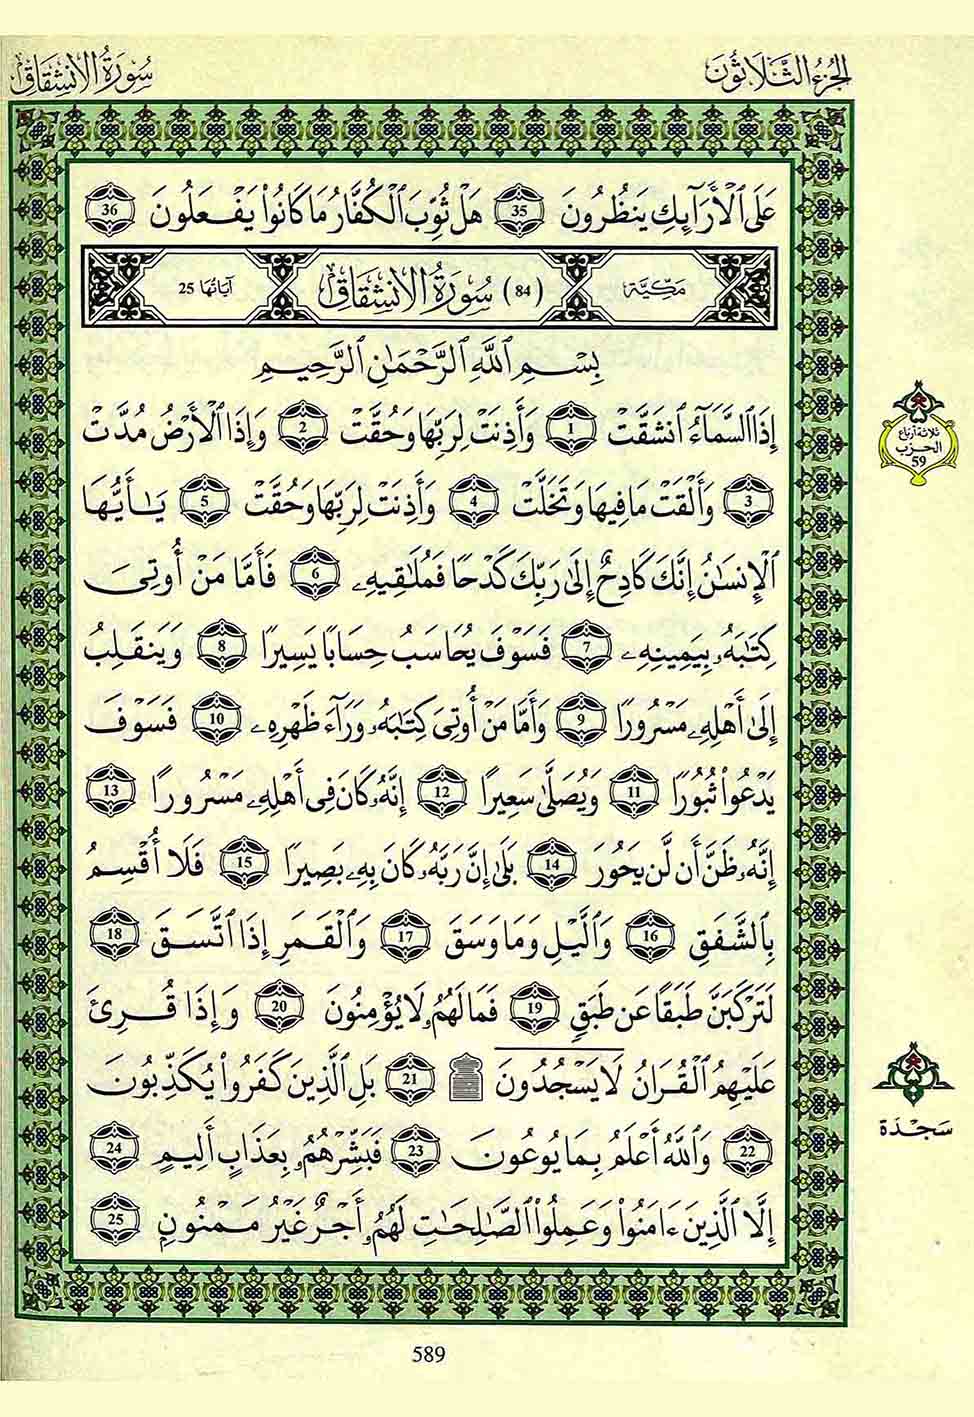 الجُزْءُ الثَّلَاثُونَ
سُورَةُ الِانشِقَاقِ
عَلَى ٱلْأَرَآئِكِ يَنظُرُونَ 35 هَلْ ثُوِّبَ ٱلْكُفَّارُ مَا كَانُواْ يَفْعَلُونَ 36
مَكِّيَّة (84) سُورَةُ الِانشِقَاقِ آيَاتُهَا 25
بِسْمِ ٱللَّهِ ٱلرَّحْمَٰنِ ٱلرَّحِيمِ
إِذَا ٱلسَّمَآءُ ٱنشَقَّتْ 1 وَأَذِنَتْ لِرَبِّهَا وَحُقَّتْ 2 وَإِذَا ٱلْأَرْضُ مُدَّتْ
3 وَأَلْقَتْ مَا فِيهَا وَتَخَلَّتْ 4 وَأَذِنَتْ لِرَبِّهَا وَحُقَّتْ 5 يَٰٓأَيُّهَا
ٱلْإِنسَٰنُ إِنَّكَ كَادِحٌ إِلَىٰ رَبِّكَ كَدْحًا فَمُلَٰقِيهِۦ 6 فَأَمَّا مَنْ أُوتِىَ
كِتَٰبَهُۥ بِيَمِينِهِۦ 7 فَسَوْفَ يُحَاسَبُ حِسَابًا يَسِيرًا 8 وَيَنقَلِبُ
إِلَىٰٓ أَهْلِهِۦ مَسْرُورًا 9 وَأَمَّا مَنْ أُوتِىَ كِتَٰبَهُۥ وَرَآءَ ظَهْرِهِۦ 10 فَسَوْفَ
يَدْعُواْ ثُبُورًا 11 وَيُصَلَّىٰ سَعِيرًا 12 إِنَّهُۥ كَانَ فِىٓ أَهْلِهِۦ مَسْرُورًا 13
إِنَّهُۥ ظَنَّ أَن لَّن يَحُورَ 14 بَلَىٰٓ إِنَّ رَبَّهُۥ كَانَ بِهِۦ بَصِيرًا 15 فَلَآ أُقْسِمُ
بِٱلشَّفَقِ 16 وَٱلَّيْلِ وَمَا وَسَقَ 17 وَٱلْقَمَرِ إِذَا ٱتَّسَقَ 18
لَتَرْكَبَنَّ طَبَقًا عَن طَبَقٍ 19 فَمَا لَهُمُۥ لَا يُؤْمِنُونَ 20 وَإِذَا قُرِئَ
عَلَيْهِمُ ٱلْقُرَانُ لَا يَسْجُدُونَ ۩ 21 بَلِ ٱلَّذِينَ كَفَرُواْ يُكَذِّبُونَ
22 وَٱللَّهُ أَعْلَمُ بِمَا يُوعُونَ 23 فَبَشِّرْهُمُۥ بِعَذَابٍ أَلِيمٍ 24
إِلَّا ٱلَّذِينَ ءَامَنُواْ وَعَمِلُواْ ٱلصَّٰلِحَٰتِ لَهُمُۥٓ أَجْرٌ غَيْرُ مَمْنُونٍ 25
ثلاثة أرباع
الحزب
59
سَجْدَة
589